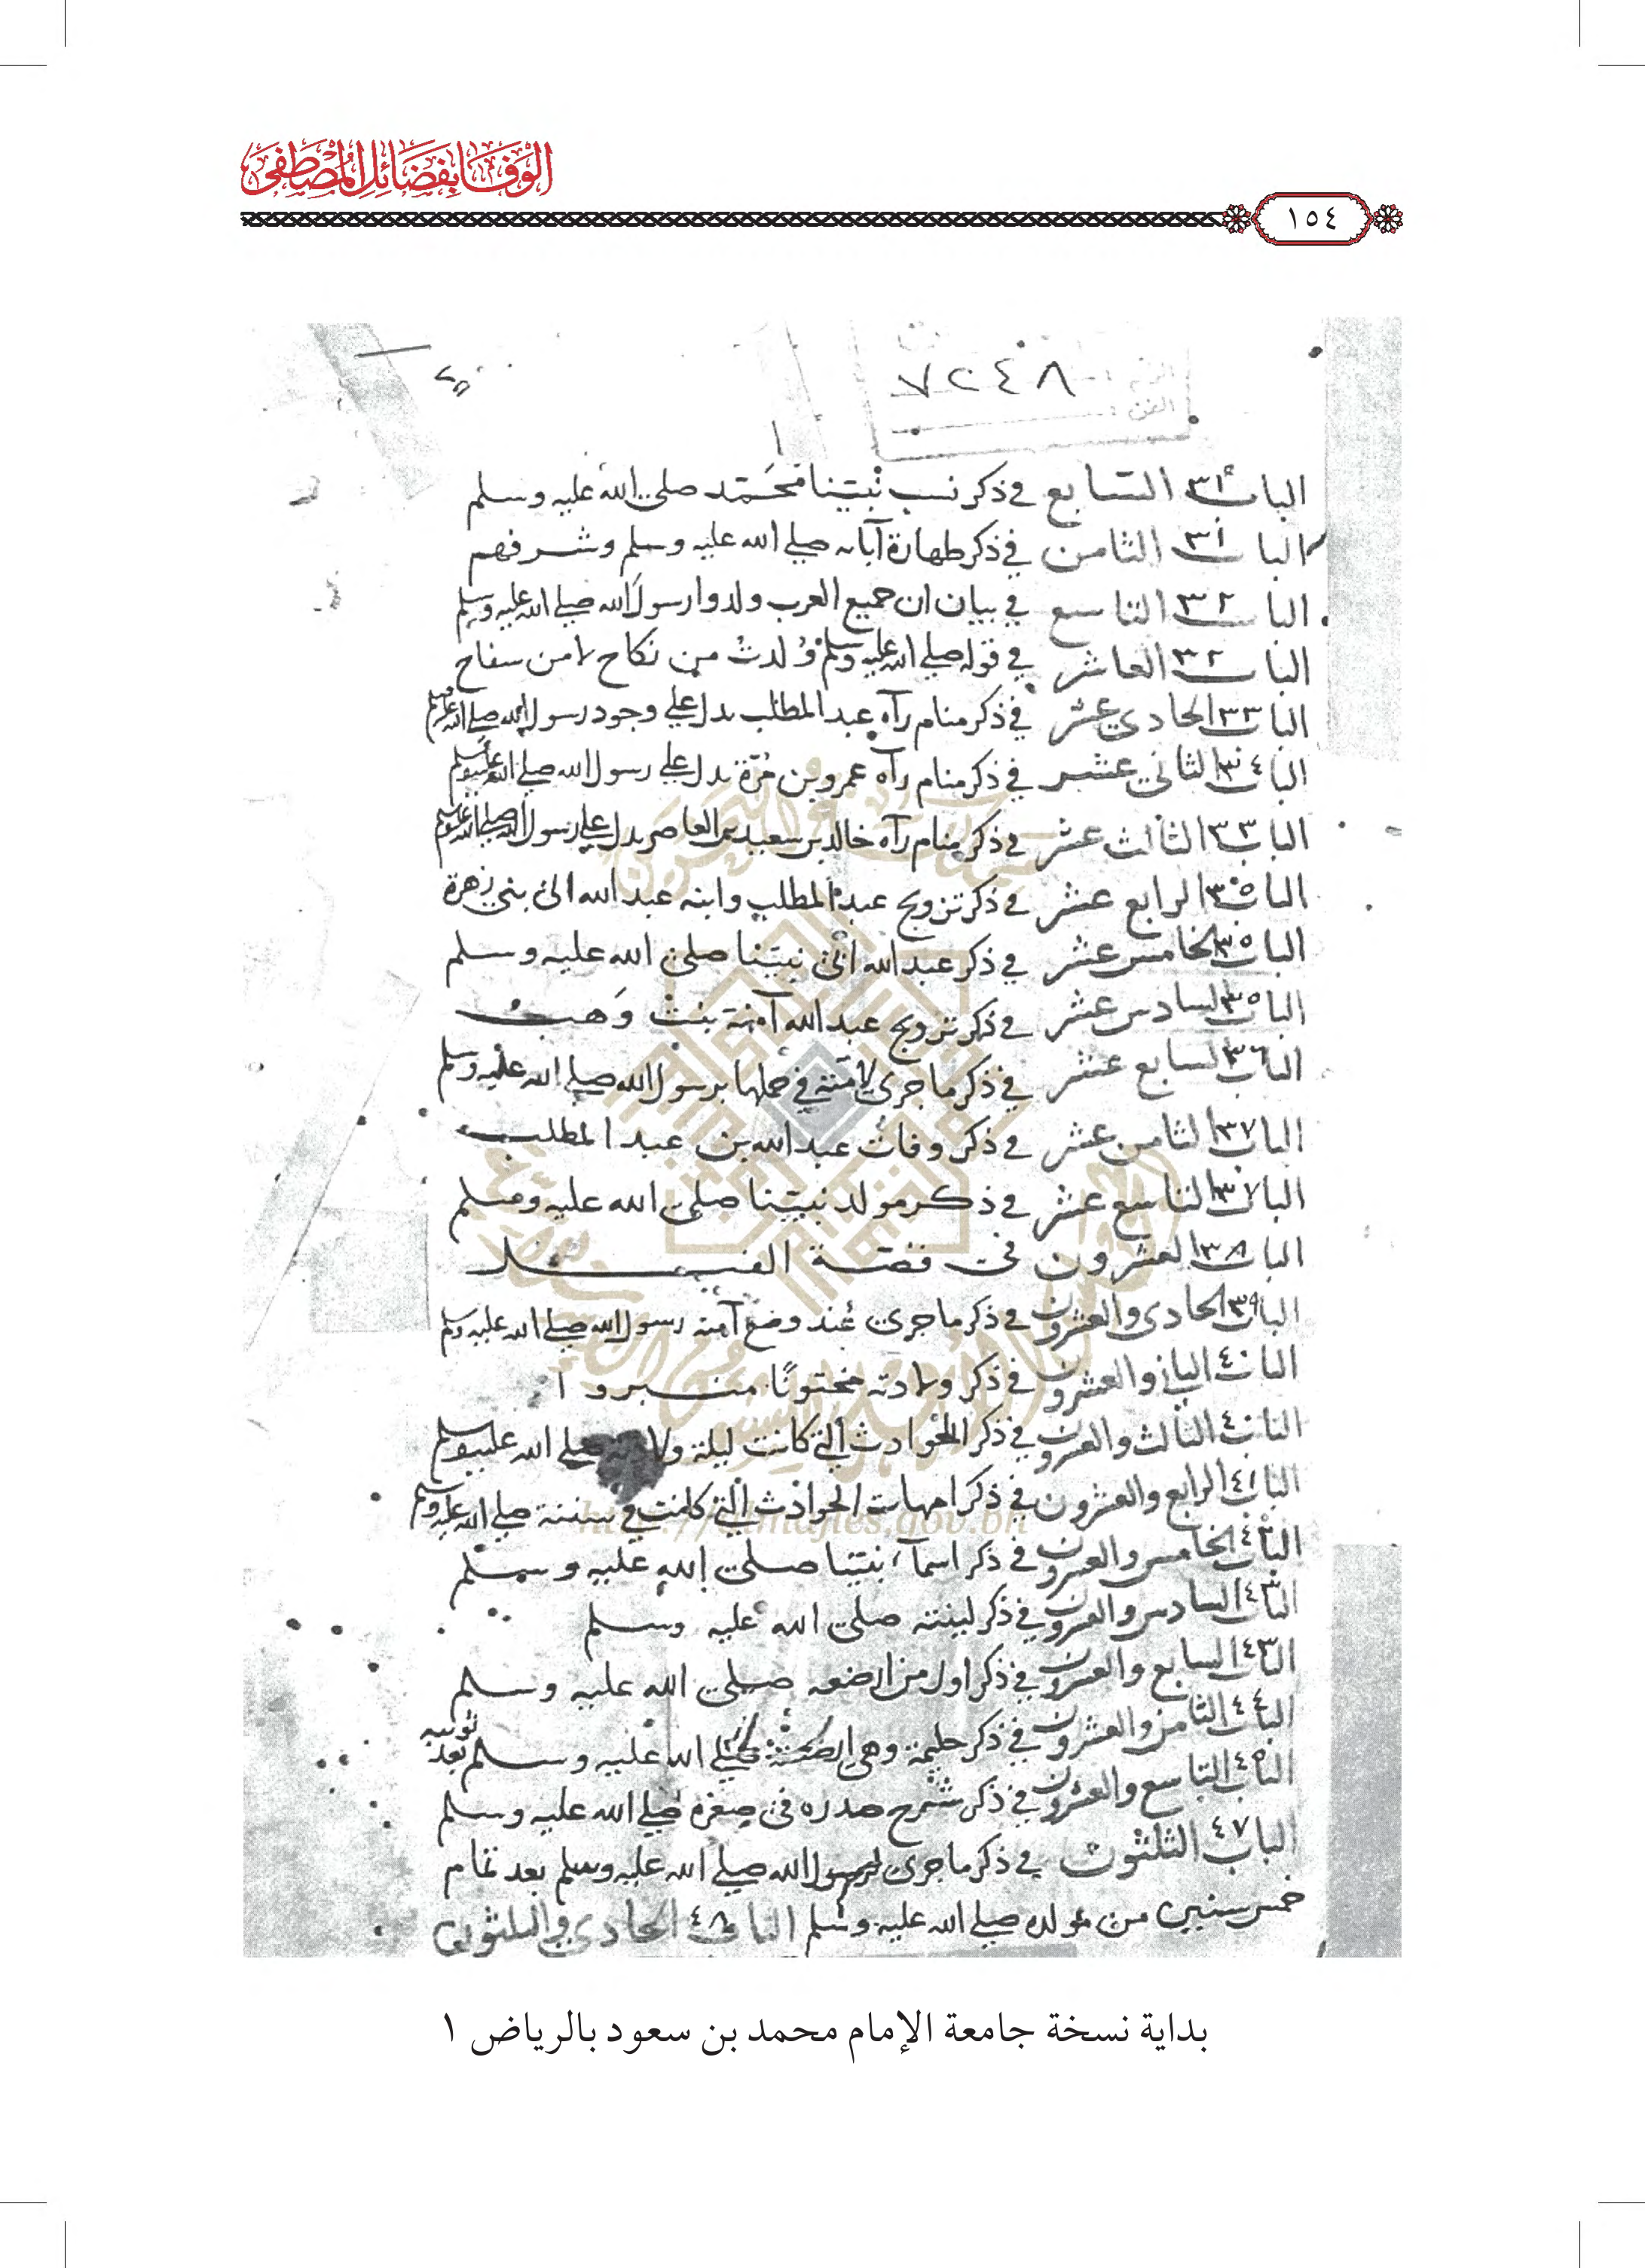 الوفا بفضائل المصطفى
١٥٤
٧٢٤٨
الباب ٣١ السابع في ذكر نسب نبينا محمد صلى الله عليه وسلم
الباب ٣١ الثامن في ذكر طهارة آبائه صلى الله عليه وسلم وشرفهم
الباب ٣٢ التاسع في بيان ان جميع العرب ولدوا رسول الله صلى الله عليه وسلم
الباب ٣٢ العاشر في قوله صلى الله عليه وسلم ولدت من نكاح لا من سفاح
الباب ٣٣ الحادي عشر في ذكر منام رآه عبد المطلب يدل على وجود رسول الله صلى الله عليه وسلم
الباب ٣٤ الثاني عشر في ذكر منام رآه عمرو بن مرة يدل على رسول الله صلى الله عليه وسلم
الباب ٣٣ الثالث عشر في ذكر منام رآه خالد بن سعيد بن العاص يدل على رسول الله صلى الله عليه وسلم
الباب ٣٥ الرابع عشر في ذكر تزويج عبد المطلب وابنه عبد الله الى بني زهرة
الباب ٣٥ الخامس عشر في ذكر عبد الله ابي نبينا صلى الله عليه وسلم
الباب ٣٥ السادس عشر في ذكر تزويج عبد الله آمنة بنت وهب
الباب ٣٦ السابع عشر في ذكر ما جرى لآمنة في حملها برسول الله صلى الله عليه وسلم
الباب ٣٧ الثامن عشر في ذكر وفات عبد الله بن عبد المطلب
الباب ٣٧ التاسع عشر في ذكر مولد نبينا صلى الله عليه وسلم
الباب ٣٨ العشرون في قصة الفيل
الباب ٣٩ الحادي والعشرون في ذكر ما جرى عند وضع آمنه رسول الله صلى الله عليه وسلم
الباب ٤٠ الثاني والعشرون في ذكر ولادته مختونا مسرورا
الباب ٤٠ الثالث والعشرون في ذكر الحوادث التي كانت ليلة ولادته صلى الله عليه وسلم
الباب ٤١ الرابع والعشرون في ذكر امهات الحوادث التي كانت في سنته صلى الله عليه وسلم
الباب ٤٢ الخامس والعشرون في ذكر اسمآء نبينا صلى الله عليه وسلم
الباب ٤٣ السادس والعشرون في ذكر كنيته صلى الله عليه وسلم
الباب ٤٣ السابع والعشرون في ذكر اول من ارضعه صلى الله عليه وسلم
الباب ٤٤ الثامن والعشرون في ذكر حليمة وهي صلى الله عليه وسلم بعد ثويبه
الباب ٤٥ التاسع والعشرون في ذكر شرح صدره في صغره صلى الله عليه وسلم
الباب ٤٧ الثلثون في ذكر ما جرى لرسول الله صلى الله عليه وسلم بعد تمام
خمس سنين من مولده صلى الله عليه وسلم الباب ٤٨ الحادي والثلثون
http://almajles.gov.bh
بداية نسخة جامعة الإمام محمد بن سعود بالرياض ١